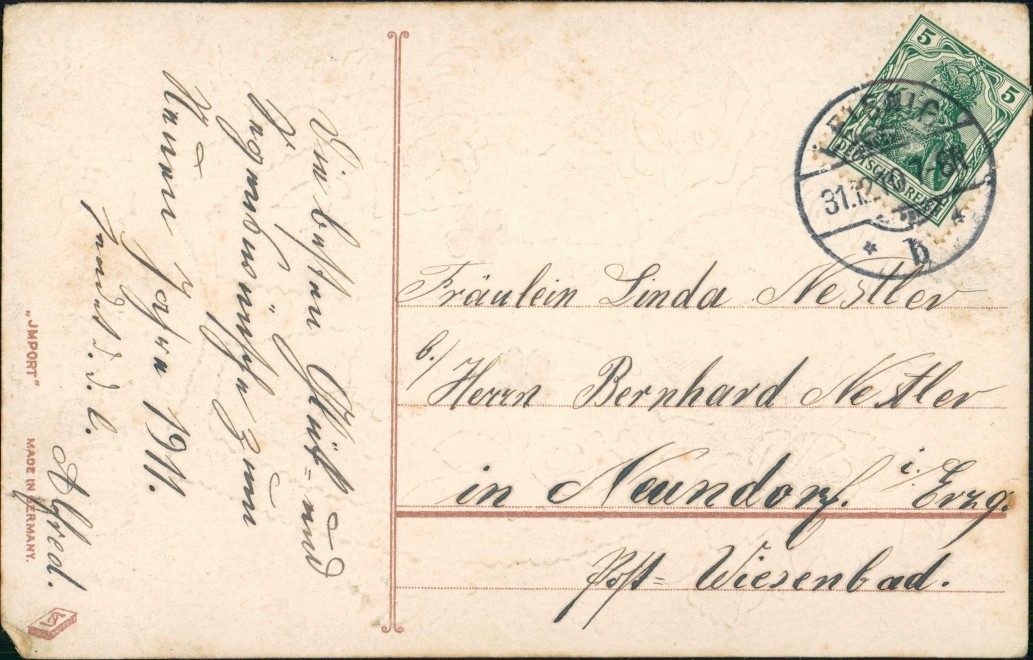 Die besten Glück= und
Segenswünsche zum
Neuen Jahre 1911.
sendet d. l.
Alfred.
Fräulein Linda Nestler
b./ Herrn Bernhard Nestler
in Neundorf. i. Erzg.
Post= Wiesenbad.
5 5
DEUTSCHES REICH
31.12.
* b *
"JMPORT"
MADE IN GERMANY.